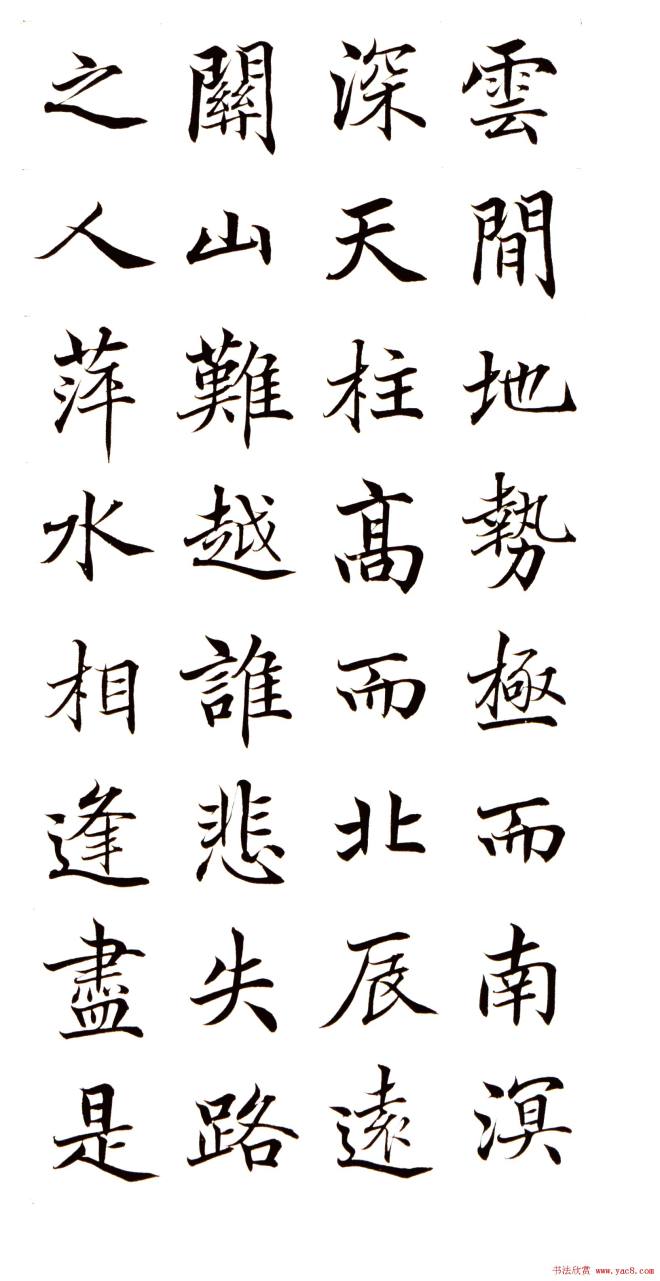 雲間地勢極而南溟
深天柱高而北辰遠
關山難越誰悲失路
之人萍水相逢盡是
书法欣赏 www.yac8.com